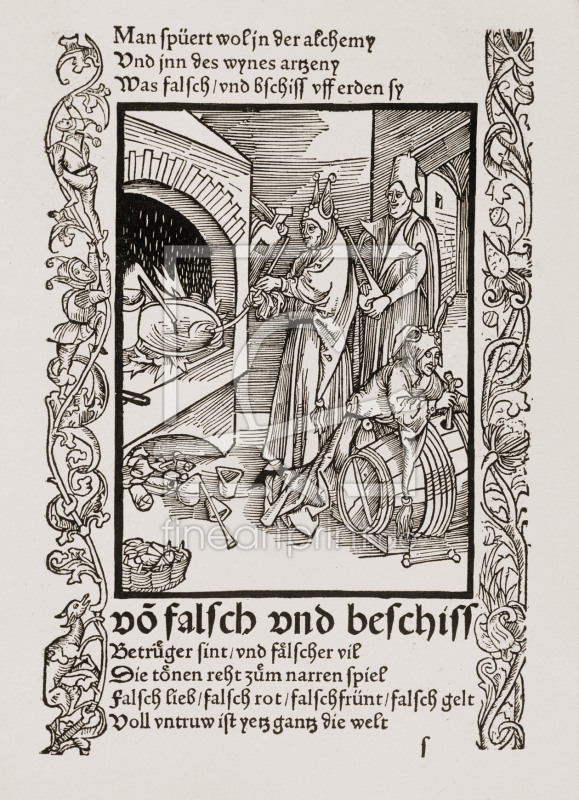 Man spüert wol jn der alchemy
Vnd jnn des wynes artzeny
Was falsch / vnd bschiss vff erden sy
fineartprint.de
võ falsch vnd beschiss
Betrüger sint / vnd fälscher vil
Die tönen reht zům narren spiel
Falsch lieb / falsch rot / falschfrünt / falsch gelt
Voll vntruw ist yetz gantz die welt
s